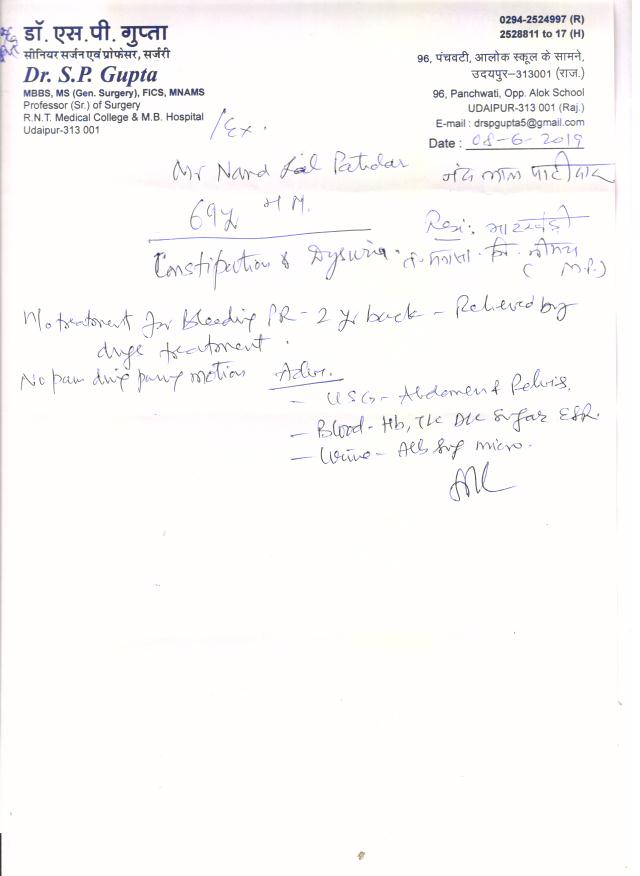 डॉ. एस.पी. गुप्ता
सीनियर सर्जन एवं प्रोफेसर, सर्जरी
Dr. S.P. Gupta
MBBS, MS (Gen. Surgery), FICS, MNAMS
Professor (Sr.) of Surgery
R.N.T. Medical College & M.B. Hospital
Udaipur-313 001
0294-2524997 (R)
2528811 to 17 (H)
96, पंचवटी, आलोक स्कूल के सामने,
उदयपुर–313001 (राज.)
96, Panchwati, Opp. Alok School
UDAIPUR-313 001 (Raj.)
E-mail : drspgupta5@gmail.com
Date : 08-6-2019
/Ex.
Mr Nand Lal Patidar नंद लाल पाटीदार
69y M
Resi:
Constipation & Dysuria.
(M.P.)
treatment for Bleeding PR - 2 yr back - Relieved by
treatment.
No pain motion
Adv.
- USG - Abdomen & Pelvis.
- Blood - Hb, TLC DLC Sugar ESR.
- Urine - Alb Sug micro.